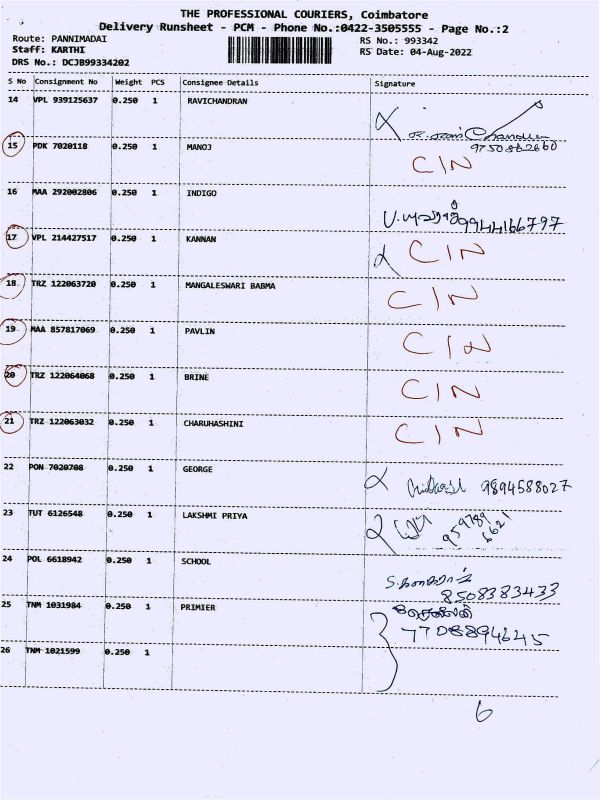 THE PROFESSIONAL COURIERS, Coimbatore
Delivery Runsheet - PCM - Phone No.:0422-3505555 - Page No.:2
Route: PANNIMADAI RS No.: 993342
Staff: KARTHI RS Date: 04-Aug-2022
DRS No.: DCJB99334202
S No Consignment No Weight PCS Consignee Details Signature
14 VPL 939125637 0.250 1 RAVICHANDRAN
15 PDK 7020118 0.250 1 MANOJ CIN
16 MAA 292002806 0.250 1 INDIGO 9944166797
17 VPL 214427517 0.250 1 KANNAN CIN
18 TRZ 122063720 0.250 1 MANGALESWARI BABMA CIN
19 MAA 857817069 0.250 1 PAVLIN CIN
20 TRZ 122064068 0.250 1 BRINE CIN
21 TRZ 122063032 0.250 1 CHARUHASHINI CIN
22 PON 7020708 0.250 1 GEORGE 9894588027
23 TUT 6126548 0.250 1 LAKSHMI PRIYA 959789 6621
24 POL 6618942 0.250 1 SCHOOL 8508383433
25 TNM 1031984 0.250 1 PRIMIER 7708894645
26 TNM 1021599 0.250 1
6